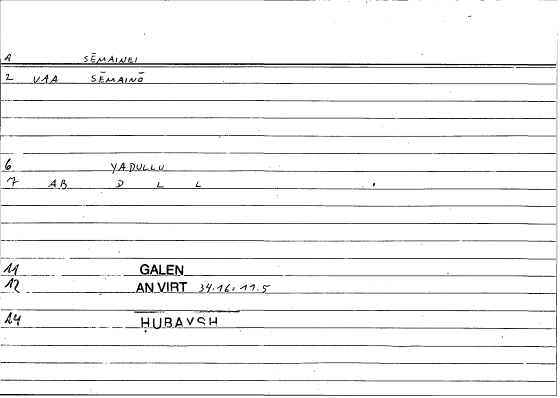 A SĒMAINEI
2 VAA SĒMAINŌ
6 YADULLU
7 AB D L L
11 GALEN
12 AN VIRT 34.16: 11.5
14 ḤUBAYSH